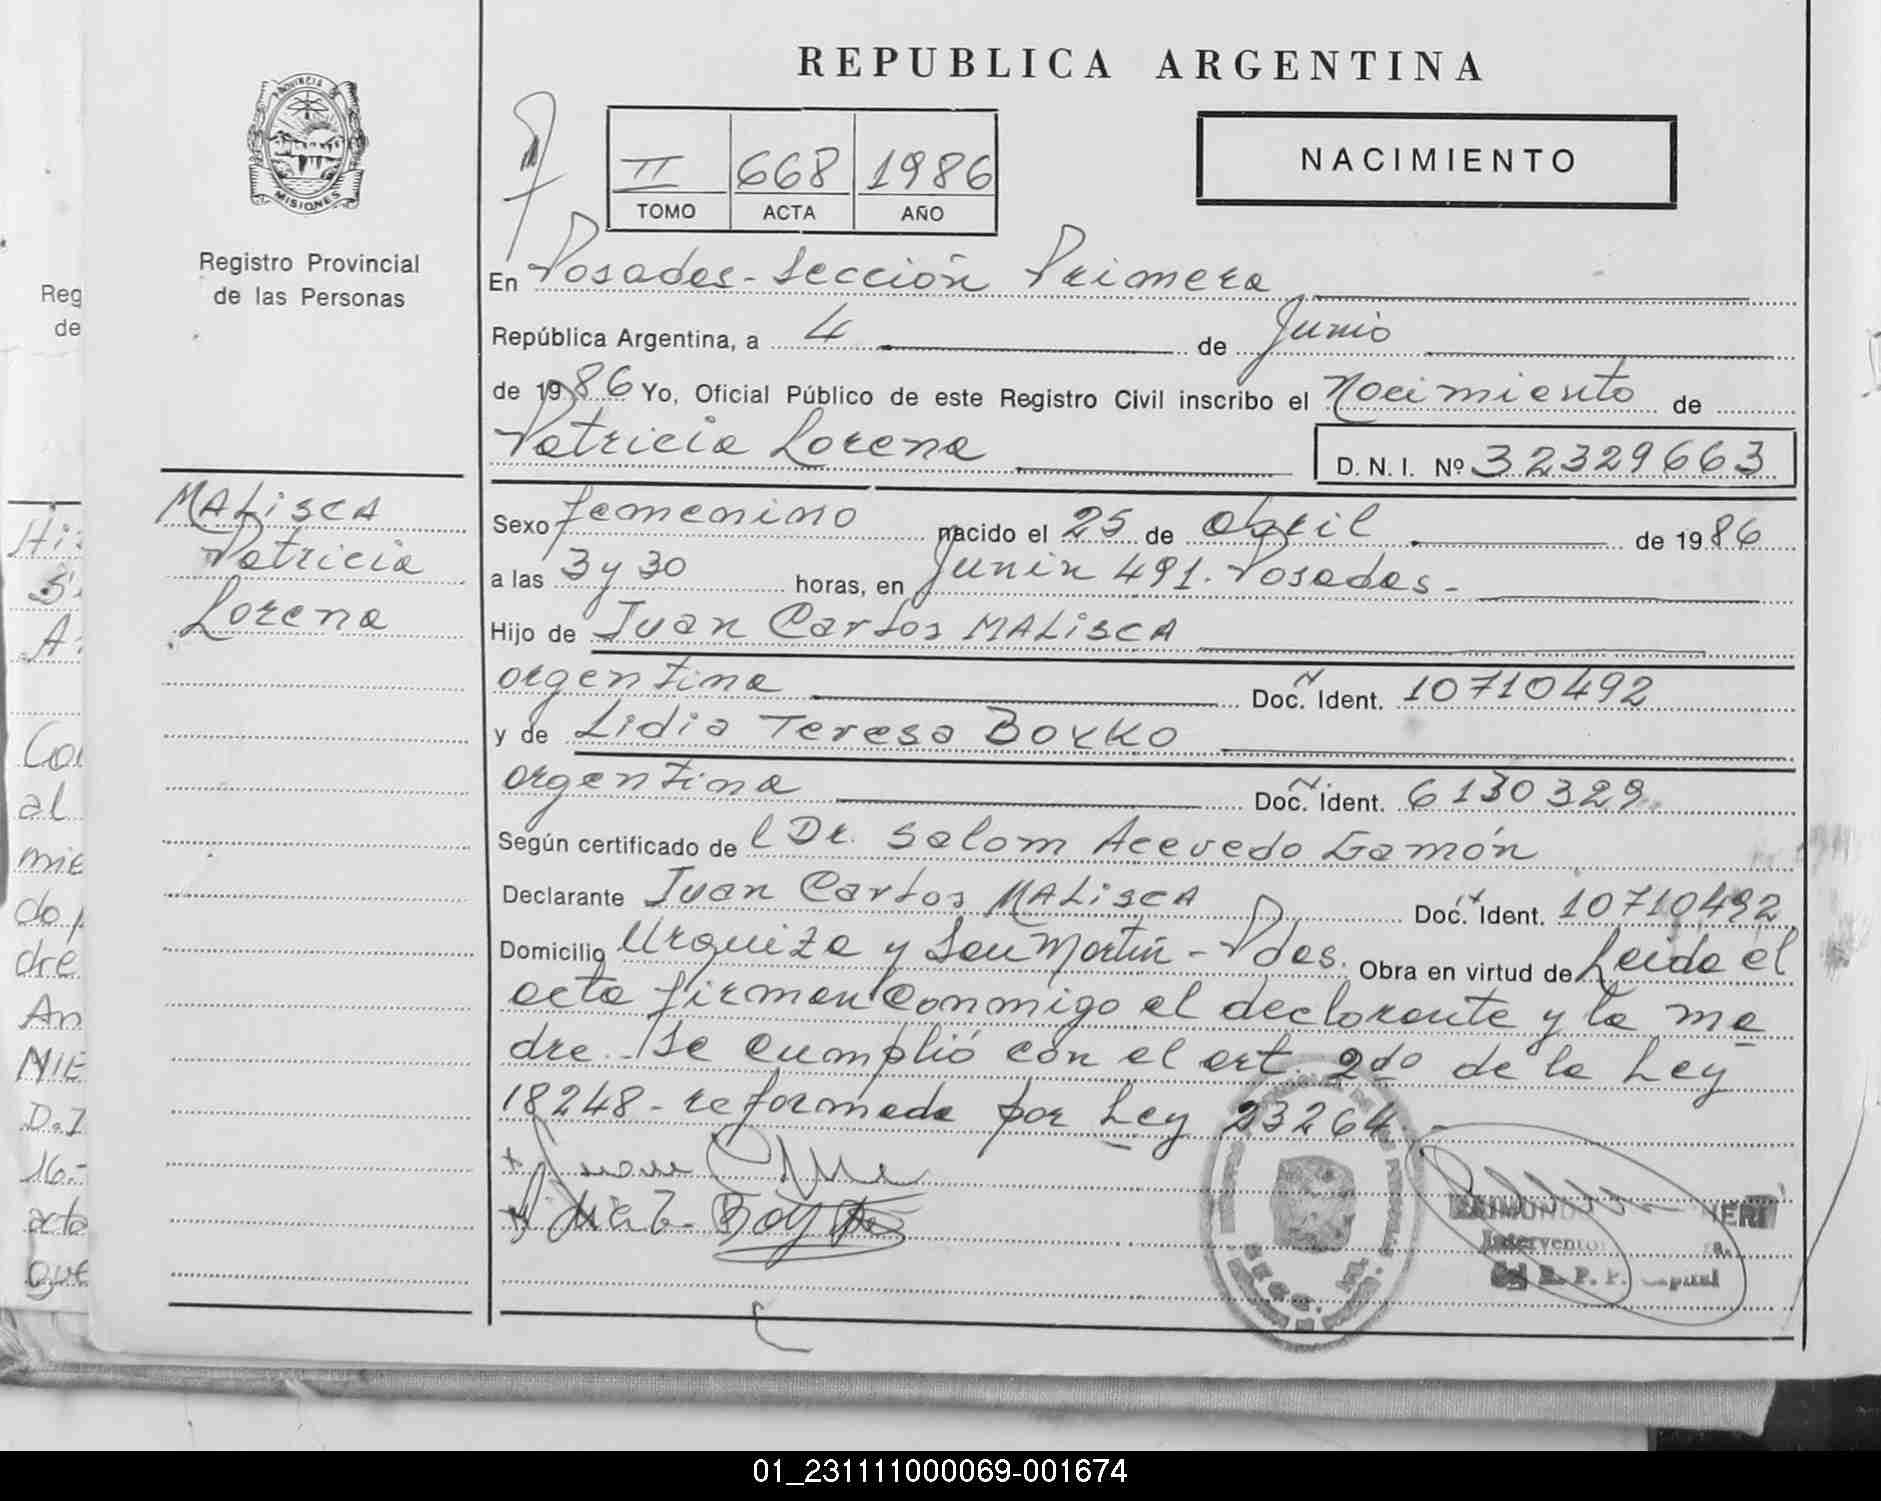 REPUBLICA ARGENTINA
PROVINCIA DE
MISIONES
Registro Provincial
de las Personas
II 668 1986
TOMO ACTA AÑO
NACIMIENTO
En Posadas - Sección Primera
República Argentina, a 4 de Junio
de 1986 Yo, Oficial Público de este Registro Civil inscribo el Nacimiento de
Patricia Lorena D. N. I. Nº 32329663
MALISCA
Patricia
Lorena
Sexo femenino nacido el 25 de abril de 1986
a las 3 y 30 horas, en Junin 491. Posadas -
Hijo de Juan Carlos MALISCA
argentina Doc. Ident. 10710492
y de Lidia Teresa
argentina Doc. Ident. 6130329
Según certificado de l Dr. Salom Acevedo
Declarante Juan Carlos MALISCA Doc. Ident. 10710492
Domicilio Urquiza y San Martin - Pdas. Obra en virtud de Leida el
acta firman conmigo el declarante y la ma
dre. - Se cumplió con el art. 2do de la Ley
18248 - reformada por Ley 23264 -
Reg
de
Col
al
mie
do p
dre
An
NIE
D.I
16.-
acta
que
01_231111000069-001674